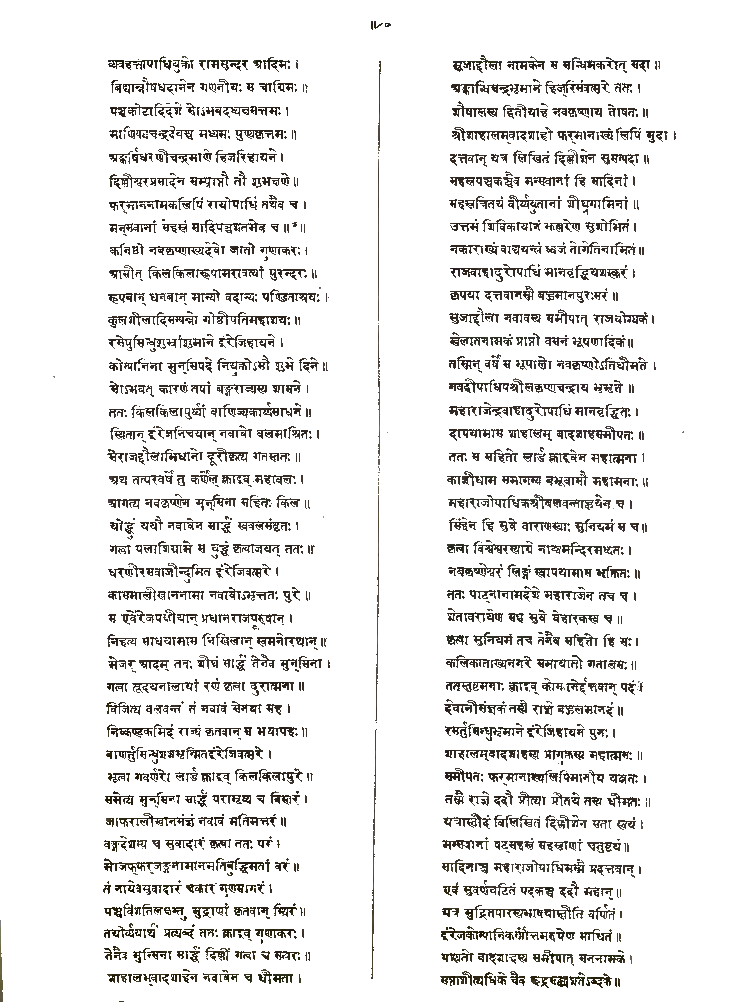 ॥८०
व्यवहर्त्तापाधियुक्तो रामसुन्दर आदिमः।
विद्यान्नौषधदानेन गणनीयः स चाग्रिमः॥
पञ्चकोटादिदेशे सोऽभवदध्यक्षसत्तमः।
माणिक्यचन्द्रदेवस्तु मध्यमः पुण्यकृत्तमः॥
अङ्कर्षिधरणीचन्द्रमाणे हिजरिहायने।
दिल्लीश्वरप्रसादेन सम्प्राप्तौ तौ शुभक्षणे॥
फर्मानामकलिपिं रायोपाधिं तथैव च।
मन्सबानां सहस्रं सादिपञ्चशतमेव च॥
कनिष्ठो नवकृष्णाख्यदेवो जातो गुणाकरः।
आसीत् किलकिलाख्यामरावत्यां पुरन्दरः॥
रूपवान् धनवान् मान्यो वदान्यः पण्डिताश्रयः।
कुलशीलादिसम्पन्नो गोष्ठीपतिमहाशयः॥
रसेषुसिन्धुशुभ्रांशुमाने इंरेजिहायने।
कोम्पानिना मुन्सिपदे नियुक्तोऽसौ शुभे दिने॥
सोऽभवत् कारणं तेषां बङ्गराज्यस्य शासने।
ततः किलकिलापुर्य्यां वाणिज्यकार्य्यसाधने॥
स्थितान् इंरेजनिचयान् नवाबो बलमाश्रितः।
सेराजद्दौलाभिधानो दूरीकृत्य गतस्ततः॥
अथ तत्परवर्षे तु कर्णेल् क्लाइव् महाबलः।
आगत्य नवकृष्णेन मुन्सिना सहितः किल॥
योद्धुं ययौ नवाबेन सार्द्धं स्वबलसंवृतः।
गत्वा पलाशिग्रामे स युद्धं कृत्वाजयत् ततः॥
धरणीरसवाजीन्दुमित इंरेजिवत्सरे।
कासमालीखाननामा नवाबोऽभूत्ततः पुरे॥
स एवेंरेजपक्षीयान् प्रधानराजपूरुषान्।
निहत्य साधयामास निखिलान् स्वमनोरथान्॥
मेजर् आदम् ततः शीघ्रं सार्द्धं तेनैव मुन्सिना।
गत्वा तूदयनालायां रणं कृत्वा दुरात्मना॥
विजित्य बलवन्तं तं नवाबं सेनया सह।
निष्कण्टकमिदं राज्यं कृतवान् स भयापहः॥
बाणर्त्तुसिन्धुशशभृन्मितइंरेजिवत्सरे।
भूत्वा गवर्णरो लार्ड क्लाइव् किलकिलापुरे॥
समेत्य मुन्सिना सार्द्धं परामृष्य च विस्तरं।
जाफरालीखानमंज्ञं नवाबं मतिमत्तरं॥
वङ्गदेशस्य च सुबादारं कृत्वा ततः परं।
मोजफ्फरजङ्गनामानमतिबुद्धिमतां वरं॥
तं नायेबसुबादारं चकार गुणसागरं।
पञ्चविंशतिलक्षन्तु मुद्राणां कृतवान् स्थिरं॥
तयोर्व्ययार्थं प्रत्यब्दं ततः क्लाइव् गुणाकरः।
तेनैव मुन्सिना सार्द्धं दिल्लीं गत्वा च सत्वरः॥
शाहालम्बादशाहेन नवाबेन च धीमता।
सूजाद्दौला नामकेन स सन्धिमकरोत् सदा॥
अङ्काश्विचन्द्रभूमाने हिजरिवत्सरे ततः।
शौयालस्य द्वितीयाहे नवकृष्णाय तोषतः॥
श्रीशाहालम्बादशाहो फर्मानाख्यं लिपिं मुदा।
दत्तवान् यत्र लिखितं दिल्लीशेन सुसम्पदा॥
सहस्रपञ्चकञ्चैव मन्सबानां हि सादिनां।
सहस्रत्रितयं वीर्य्ययुतानां शीघ्रगामिनां॥
उत्तमं शिविकायानं झल्लरेण सुशोभितं।
नकाराख्यं वाद्ययन्त्रं ध्वजं तोगेतिनामितं॥
राजबाहादुरोपाधिं मानवृद्धियशस्करं।
कृपया दत्तवानस्मै बहुमानपुरःसरं॥
सुजाद्दौला नवाबस्य समीपात् राजयोग्यकं।
खेलातनामकं प्राप्तो वसनं भूषणादिकं॥
तस्मिन् वर्षे स भूपालो नवकृष्णोऽतिधीमते।
नवद्वीपाधिपश्रीलकृष्णचन्द्राय भूभृते॥
महाराजेन्द्रबाहादुरोपाधिं मानवृद्धितः।
दापयामास शाहालम् बादशाहसमीपतः॥
ततः स सहितो लार्ड क्लाइवेन महात्मना।
काशीधाम समागम्य बभूवासौ महामनाः॥
महाराजोपाधिकश्रीबलवन्ताह्वयेन च।
सिंहेन हि सुबे वाराणस्याः सुनियमं स च॥
कृत्वा विश्वेश्वरस्याग्रे नाट्यमन्दिरमध्यतः।
नवकृष्णेश्वरं लिङ्गं स्थापयामास भक्तितः॥
ततः पाट्नानामदेशे महाराजेन तत्र च।
श्वेतावरायेण सह सुबे बेहारकस्य च॥
कृत्वा सुनियमं तत्र तेनैव सहितो हि सः।
कलिकाताख्यनगरे समायातो गतालसः॥
ततस्तुष्टमनाः क्लाइव् कोम्पानेर्दत्तवान् पदं।
देवानीसंज्ञकं तस्मै राज्ञे बहुलमानदं॥
रसर्त्तुसिन्धुभूमाने इंरेजिहायने पुनः।
शाहालम्बादशाहस्य प्रागुक्तस्य महात्मनः॥
समीपतः फर्मानाख्यलिपिमानीय यत्नतः।
तस्मै राज्ञे ददौ प्रीत्या प्रीतये तस्य धीमतः॥
यत्रासीदं विलिखितं दिल्लीशेन सता स्वयं।
मन्सबानां षट्सहस्रं सहस्राणां चतुष्टयं॥
सादिनाञ्च महाराजोपाधिमस्मै प्रदत्तवान्।
एवं सुवर्णघटितं पदकञ्च ददौ महान्॥
यत्र मुद्रितपारस्यभाषयास्तीति वर्णितं।
इंरेजकोम्पानिकर्त्तोत्तमरूपेण मानितं॥
यद्दत्तो बादशाहस्य समीपात् सननामके।
सप्ताशीत्यधिके चैव रुद्रसङ्ख्यशतेऽब्दके॥